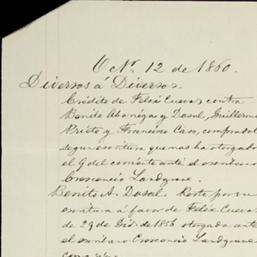 Oct. 12 de 1860.
Diversos á Diversos.
Crédito de Felix Cuevas contra
Benito y Dosal, Guillermo
Prieto y Francisco Caso, comprobado
segun escritura que nos ha otorgado
el 9 del corriente ante el escribano
Crescencio Landgrave.
Benito A. Dosal. Resto por su
escritura á favor de Felix Cuevas
de 29 de Dic. de 1856 otorgada ante
el escribano Crescencio Landgrave